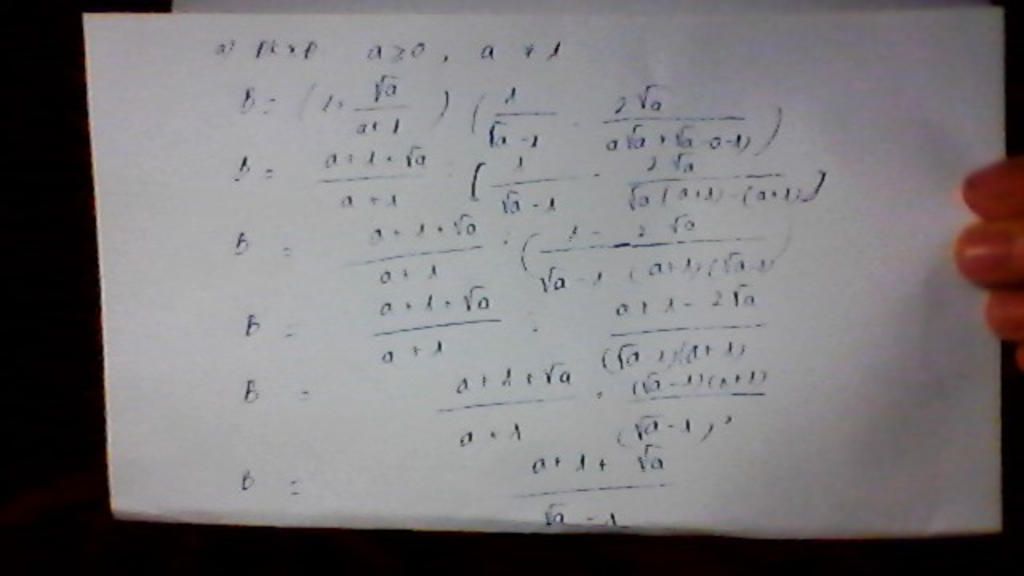 a) ĐKXĐ a ≥ 0, a ≠ 1
B = (1 + √a / a + 1) : (1 / √a - 1 - 2√a / a√a + √a - a - 1)
B = a + 1 + √a / a + 1 : [1 / √a - 1 - 2√a / √a (a+1) - (a+1)]
B = a + 1 + √a / a + 1 : (1 - 2 √a / √a - 1 (a+1) (√a - 1)
B = a + 1 + √a / a + 1 : a + 1 - 2√a / (√a - 1)(a + 1)
B = a + 1 + √a / a + 1 . (√a - 1)(a + 1) / (√a - 1)²
B = a + 1 + √a / √a - 1